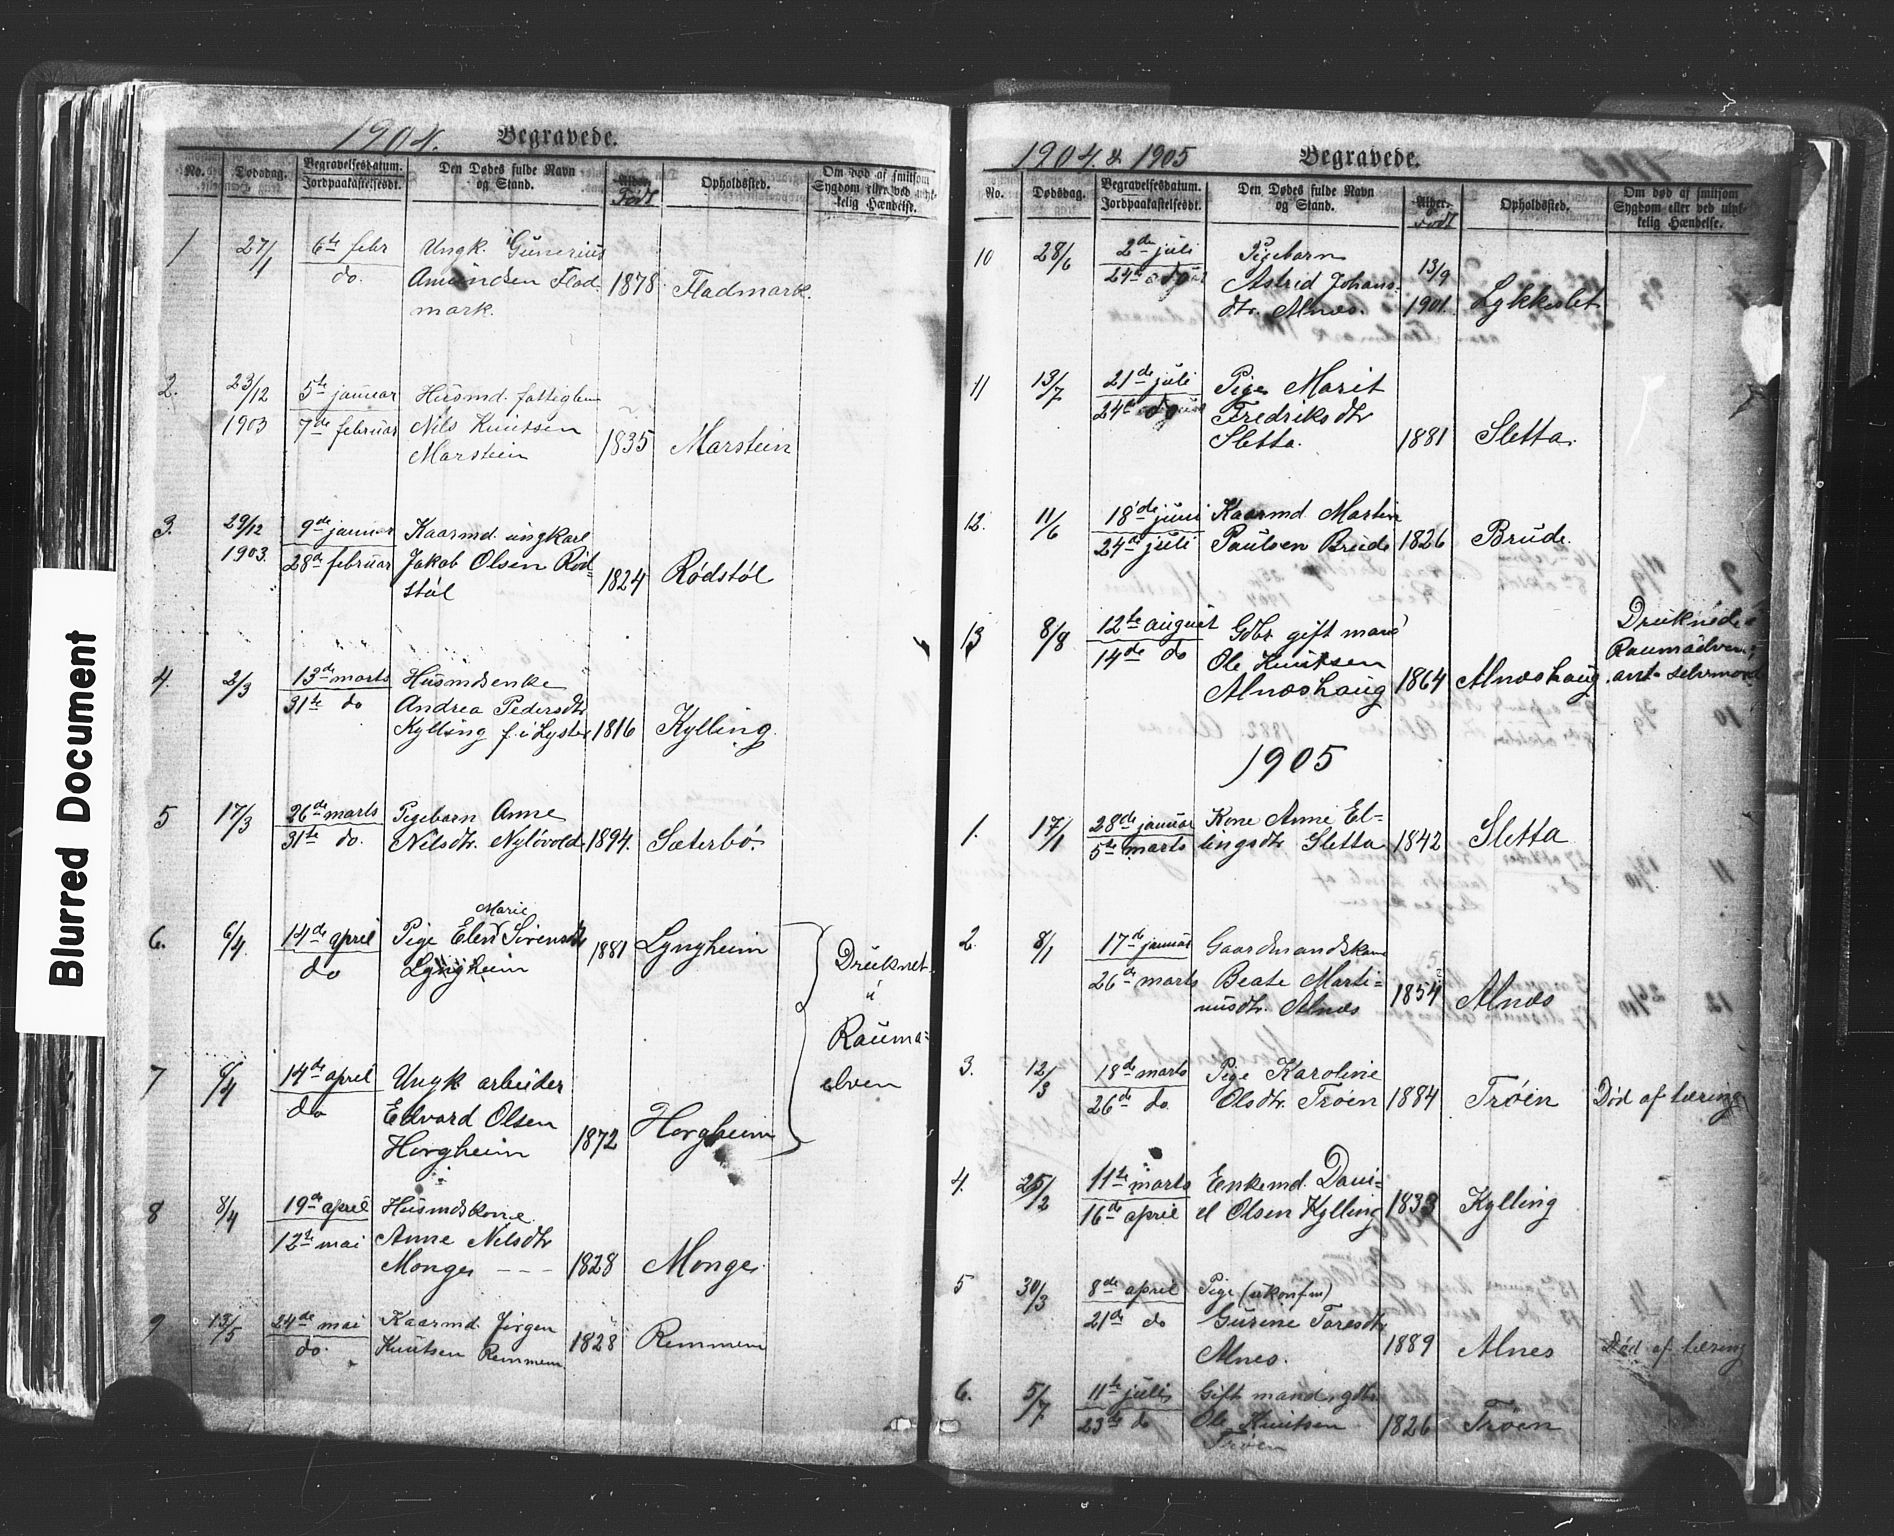 1904. Begravede.
No.
Dødsdag.
Begravelsesdatum.
Jordpaakastelsesdt.
Den Dødes fulde Navn
og Stand.
Alder.
Født
Opholdssted.
Om død af smitsom
Sygdom eller ved ulyk-
kelig Hændelse.
1 27/1 6te febr Ungk. Gunerius
do. Amundsen Flad- 1878 Fladmark.
mark.
2. 23/12 5te januar Husmd. fattiglem
1903 7de februar Nils Knutsen 1835 Marstein
Marstein
3. 29/12 9de januar Kaarmd. ungkarl
1903. 28de februar Jakob Olsen Rød- 1824 Rødstøl
støl
4. 2/3 13de marts Husmdsenke
31te do Andrea Pedersdtr
Kylling f. i Lyster 1816 Kylling.
5 17/3 26de marts Pigebarn Anne
31te do. Nilsdtr. Nyløvold 1894. Sæterbø.
6. 6/4 14de april Pige Elen Marie Sivensdtr 1881 Lyngheim
do Lyngheim
Druknet
i
Rauma=
elven
7 6/4 14de april Ungk arbeider
do Edvard Olsen
Horgheim 1872 Horgheim
8 8/4 19de april Husmdskone
12te mai Anne Nilsdtr
Monge --- 1828 Monge.
9 13/5 24de mai Kaarmd Jørgen
do. Knutsen Remmem 1828 Remmem
1904 & 1905 Begravede.
No.
Dødsdag.
Begravelsesdatum.
Jordpaakastelsesdt.
Den Dødes fulde Navn
og Stand.
Alder.
Født
Opholdssted.
Om død af smitsom
Sygdom eller ved ulyk-
kelig Hændelse.
10 28/6 2de juli Pigebarn 13/9
24de Astrid Johans-
dtr. Alnæs. 1901. Lykkeslet
11 13/7 21de juli Pige Marit
24de Fredriksdtr
Sletta. 1881 Sletta.
12. 11/6 18de juni Kaarmd. Martin
24de juli Paulsen Brude 1826 Brude.
13 8/8 12te august Gdbr gift mand
14de do Ole Knutsen
Alnæshaug 1864 Alnæshaug
Druknede i
Raumaelven,
ant. selvmord
1905
1. 17/1 28de januar Kone Anne El=
5te marts lingsdtr Sletta 1842 Sletta
2. 8/1 17de januar Gaardmandskone
26de marts Beate Marti=
nusdtr. Alnæs 1854 Alnæs
3. 12/3 18de marts Pige Karoline
26de do. Olsdtr. Trøen 1884 Trøen Død af tæring
4. 25/2 11te marts Enkemd. Dani=
16de april el Olsen Kylling 1833 Kylling
5 30/3 8de april Pige (ukonfm)
21de do Gurine Toresdtr
Alnes. 1889 Alnes Død af tæring
6. 5/7. 11te juli Gift mand, gdbr.
23de do Ole Knutsen 1826 Trøen
Trøen
Blurred Document